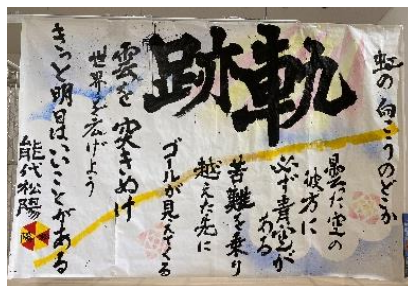 軌跡
虹の向こうのどこか
曇った空の
彼方に
必ず青空が
ある
苦難を乗り
越えた先に
ゴールが見えてくる
雲を突きぬけ
世界を広げよう
きっと明日はいいことがある
能代松陽